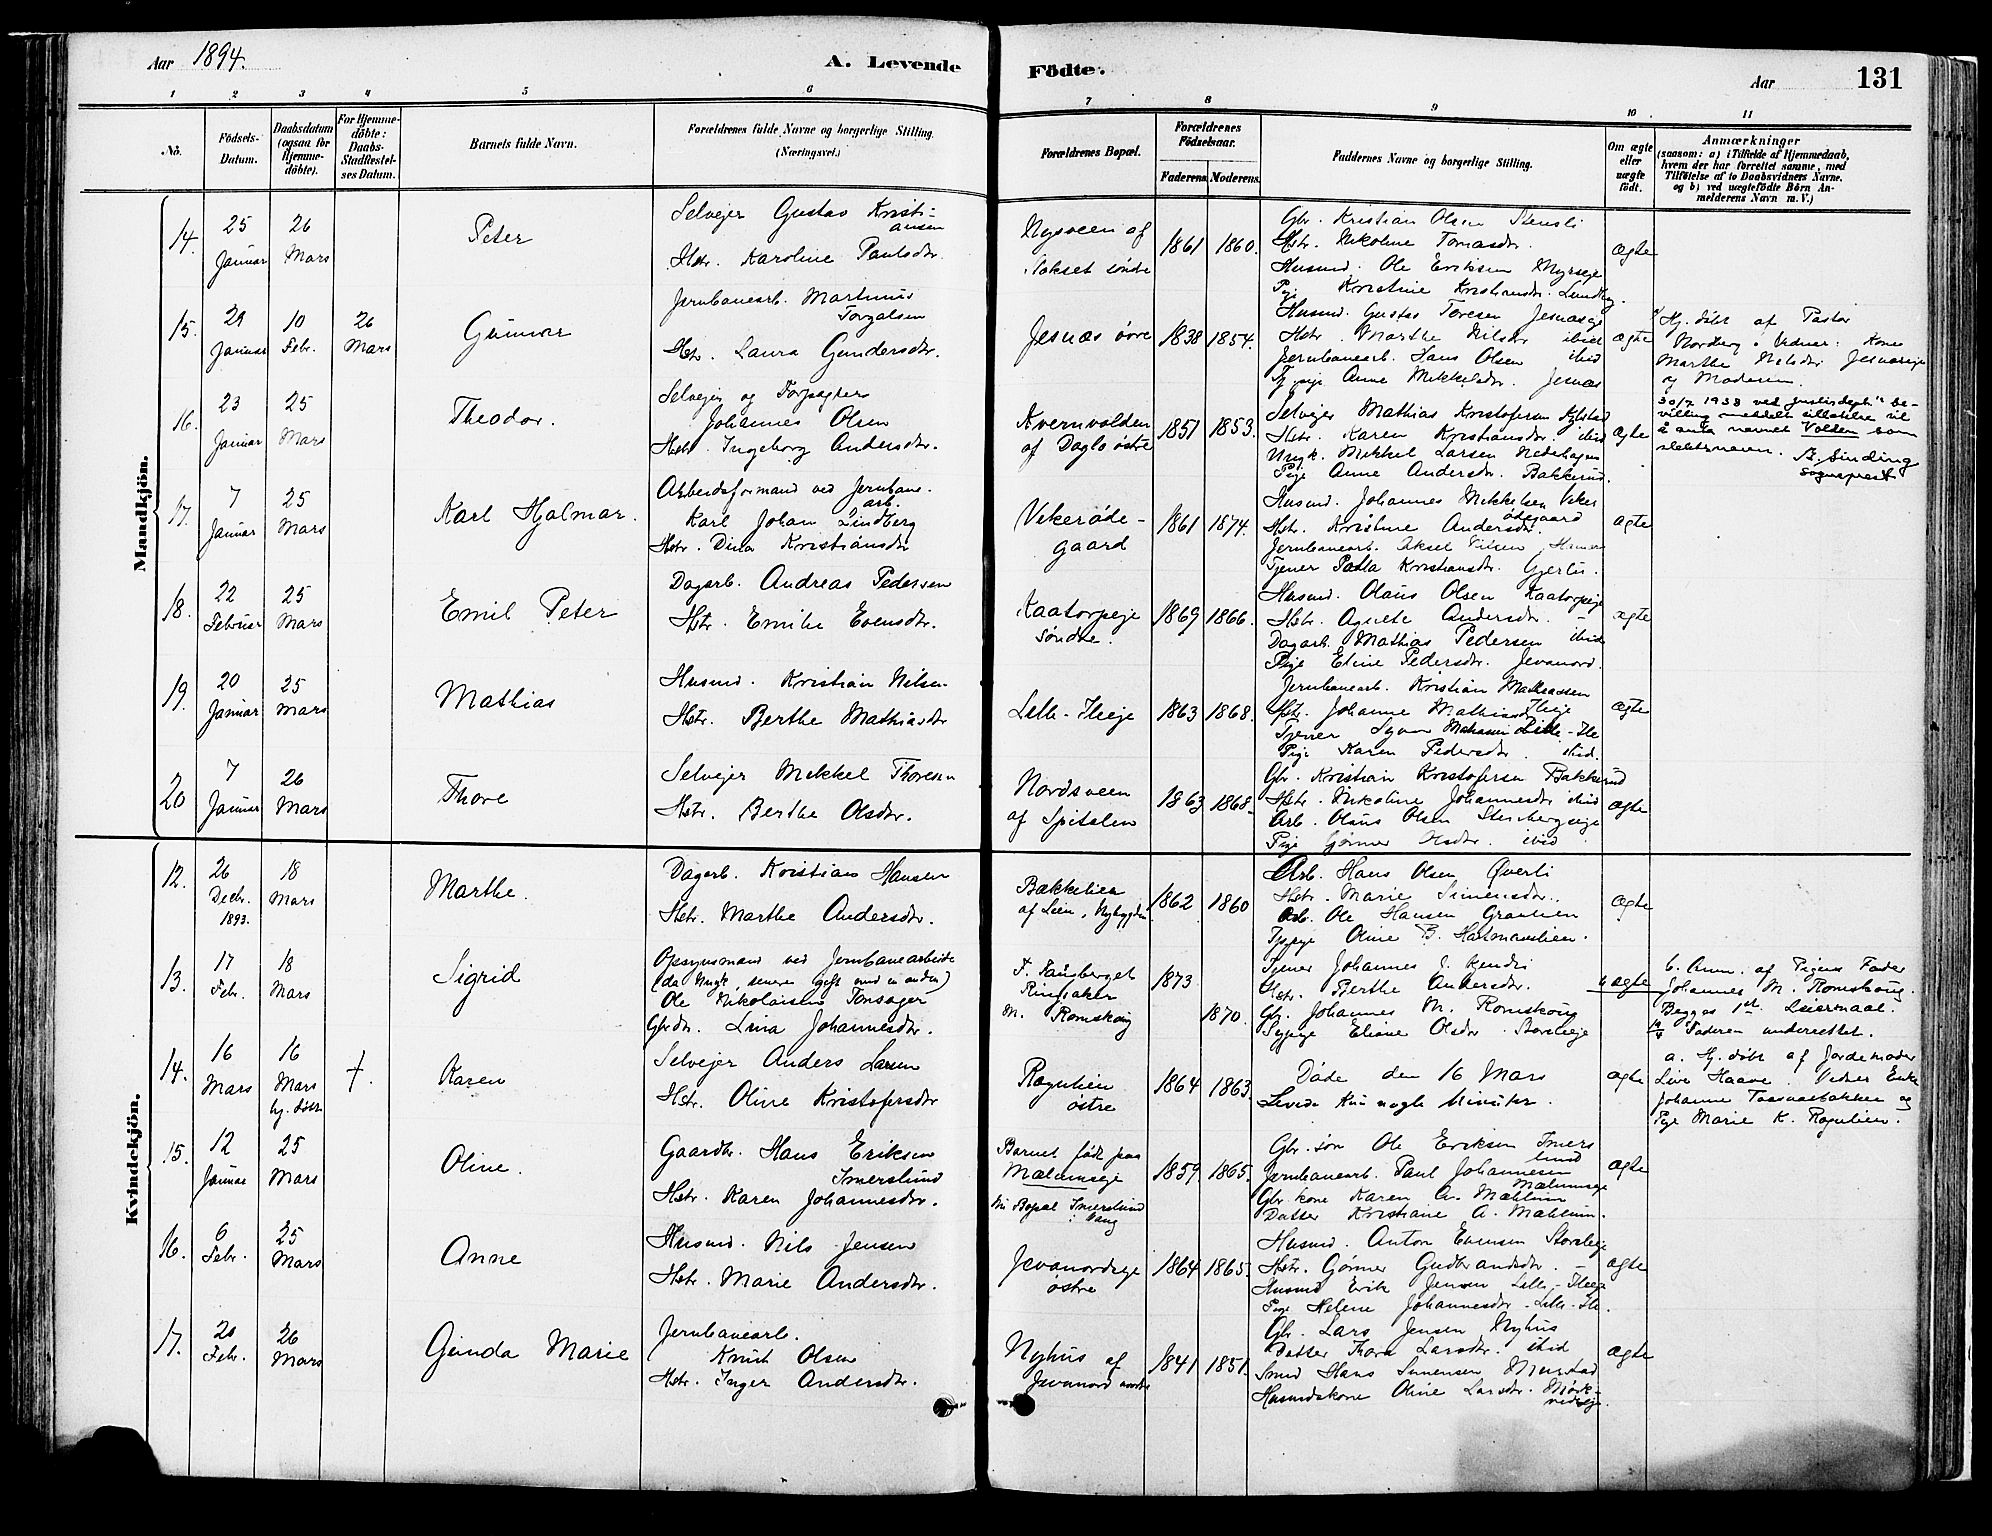 Aar 1894.
A. Levende Födte.
Aar 131
1 2 3 4 5 6 7 8 9 10 11
No.
Födsels-Datum.
Daabsdatum (ogsaa for Hjemme-döbte).
For Hjemme-döbte: Daabs-Stadfæstel-ses Datum.
Barnets fulde Navn.
Forældrenes fulde Navne og borgerlige Stilling.
(Næringsvei.)
Forældrenes Bopæl.
Forældrenes Födselsaar.
Faderens. Moderens.
Faddernes Navne og borgerlige Stilling.
Om ægte eller uægte födt.
Anmærkninger
(saasom: a) i Tilfælde af Hjemmedaab,
hvem der har forrettet samme, med
Tilföielse af to Daabsvidners Navne.
og b) ved uægtefödte Börn An-
melderens Navn m. V.)
Mandkjön.
14. 25 Januar 26 Mars Peter
Selvejer Gustav Kristi-
ansen
Hstr. Karoline Paulsdtr.
Nysveen af
Nokset söndre
1861 1860.
Gbr. Kristian Olsen Stensli
Hstr. Nikoline Tomasdtr.
Husmd. Ole Eriksen Myrseje
Pige Kristine Kristiansdtr. Lundby.
ægte
15. 29 Januar 10 Febr. 26 Mars Gunnar
Jernbanearb. Martinus
Torgalsen
Hstr. Laura Gundersdtr.
Jesnæs övre 1838 1854.
Husmd. Gustav Toresen Jesnæseje
Hstr. Marthe Nilsdtr ibid
Jernbanearb. Hans Olsen ibid
Tj. pige Anne Mikkelsdtr. Jesnæs
ægte
Hj. döbt af Pastor
Norberg. Vidner: Kone
Marthe Nilsdtr Jesnæseje
og Moderen.
16. 23 Januar 25 Mars Theodor.
Selvejer og Forpagter
Johannes Olsen
Hstr. Ingeborg Andersdtr.
Kvernvolden
af Daglö östre
1851 1853.
Selvejer Mathias Kristofersen
Hstr. Karen Kristiansdtr. ibid
Ungk. Mikkel Larsen Nedehagen
Pige Anne Andersdtr. Bakkerud.
ægte
30/7 1938 ved justisdept's be-
villing meddelt tillatelse til
å anta navnet Volden som
slektsnavn. A. Sinding
sogneprest
17. 7 Januar 25 Mars Karl Hjalmar.
Arbeidsformand ved Jernbane-
arb.
Karl Johan Lindberg
Hstr. Dina Kristiansdtr
Vikeröde-
gaard
1861 1874.
Husmd. Johannes Mikkelsen Viker
ödegaard
Hstr. Kristine Andersdtr.
Jernbanearb. Aksel Nilsen Hamar
Tjener Palla Kristiansdtr. Gjerlu.
ægte
18. 22 Februar 25 Mars Emil Peter
Dagarb. Andreas Pedersen
Hstr. Emilie Evensdtr.
Kaatorpeje
söndre.
1869 1866.
Husmd. Olaus Olsen Kaatorpeje
Hstr. Agnete Andersdtr. -
Dagarb. Mathias Pedersen ibid
Pige Eline Pedersdtr. Jevanord.
ægte
19. 20 Januar 25 Mars Mathias
Husmd. Kristian Nilsen
Hstr. Berthe Mathiasdtr
Lille-Ileeje 1863 1868.
Jernbanearb. Kristian Mathiassen
Ileeje
Hstr. Johanne Mathiasdtr
Tjener Syver Lille-Ile
Pige Karen Pedersdtr. ibid.
ægte
20 7 Januar 26 Mars Thore
Selvejer Mikkel Thoresen
Hstr. Berthe Olsdtr.
Nordsveen
af Spitalen
1863 1868.
Gbr. Kristian Kristofersen Bakkerud
Hstr. Nikoline Johannesdtr ibid
Arb. Olaus Olsen Stenbergseje
Pige Gjörner Olsdtr. ibid
ægte
Kvindekjön.
12. 26 Decbr. 1893. 18 Mars Marthe.
Dagarb. Kristian Hansen
Hstr. Marthe Andersdtr.
Bakkelien
af Lien, Nybygden
1862 1860
Arb. Hans Olsen Överli
Hstr. Marie Simensdtr.
Arb. Ole Hansen Granlien
Tjpige Oline B. Holmenslien.
ægte
13. 17 Febr. 18 Mars Sigrid
Opsynsmand ved Jernbanearbeide
(da Ungk., senere gift med en anden)
Ole Nikolaisen Tonsager
Gbrdtr. Lina Johannesdtr.
F. Fauberget
Ringsaker
M. Romskoug
1873
1870.
Tjener Johannes J. Kendli
Hstr. Berthe Andersdtr.
Gbr. Johannes M. Romskoug
Sypige Eliane Olsdtr. Storsleeje
uægte
b. Anm. af Pigens Fader
Johannes M. Romskoug.
Begges 1ste Leiermaal.
Faderen underrettet.
14. 16 Mars 16 Mars hj. döbt †. Karen
Selvejer Anders Larsen
Hstr. Oline Kristofersdtr
Rognlien
östre
1864 1863.
Döde den 16 Mars
Levede kun nogle Minuter.
ægte
a. Hj. döbt af Jordemoder
Live Haave. Vidner Enke
Johanne Taasaasbakken og
Pige Marie K. Rognlien.
15. 12 Januar 25 Mars Oline.
Gaardbr. Hans Eriksen
Imerslund
Hstr. Karen Johannesdtr.
Barnet födt paa
Mælumseje
Nu Bopæl Imerslund
i Vang
1859. 1865.
Gbr. sön Ole Eriksen Imers
lund
Jernbanearb. Paul Johannesen
Mælumseje
Gbr kone Karen A. Mæhlum
Datter Kristiane A. Mæhlum.
ægte
16. 6 Febr. 25 Mars Anne
Husmd. Nils Jensen
Hstr. Marie Andersdtr.
Jevanordseje
östre
1864 1865.
Husmd. Anton Evensen Storsleeje
Hstr. Gjörner Gudbrandsdtr. -
Husmd Erik Jensen Lille-Ileeje
Pige Helene Johannesdtr. Lille-Ile.
ægte
17. 20 Febr. 26 Mars Gunda Marie
Jernbanearb.
Knut Olsen
Hstr. Inger Andersdtr.
Nyhus af
Jevanord nordre
1841 1851.
Gbr. Lars Jensen Nyhus
Datter Thora Larsdtr. ibid
Smed Hans Simensen Mustad
Husmdskone Oline Larsdtr. Mörk-
vedseje.
ægte